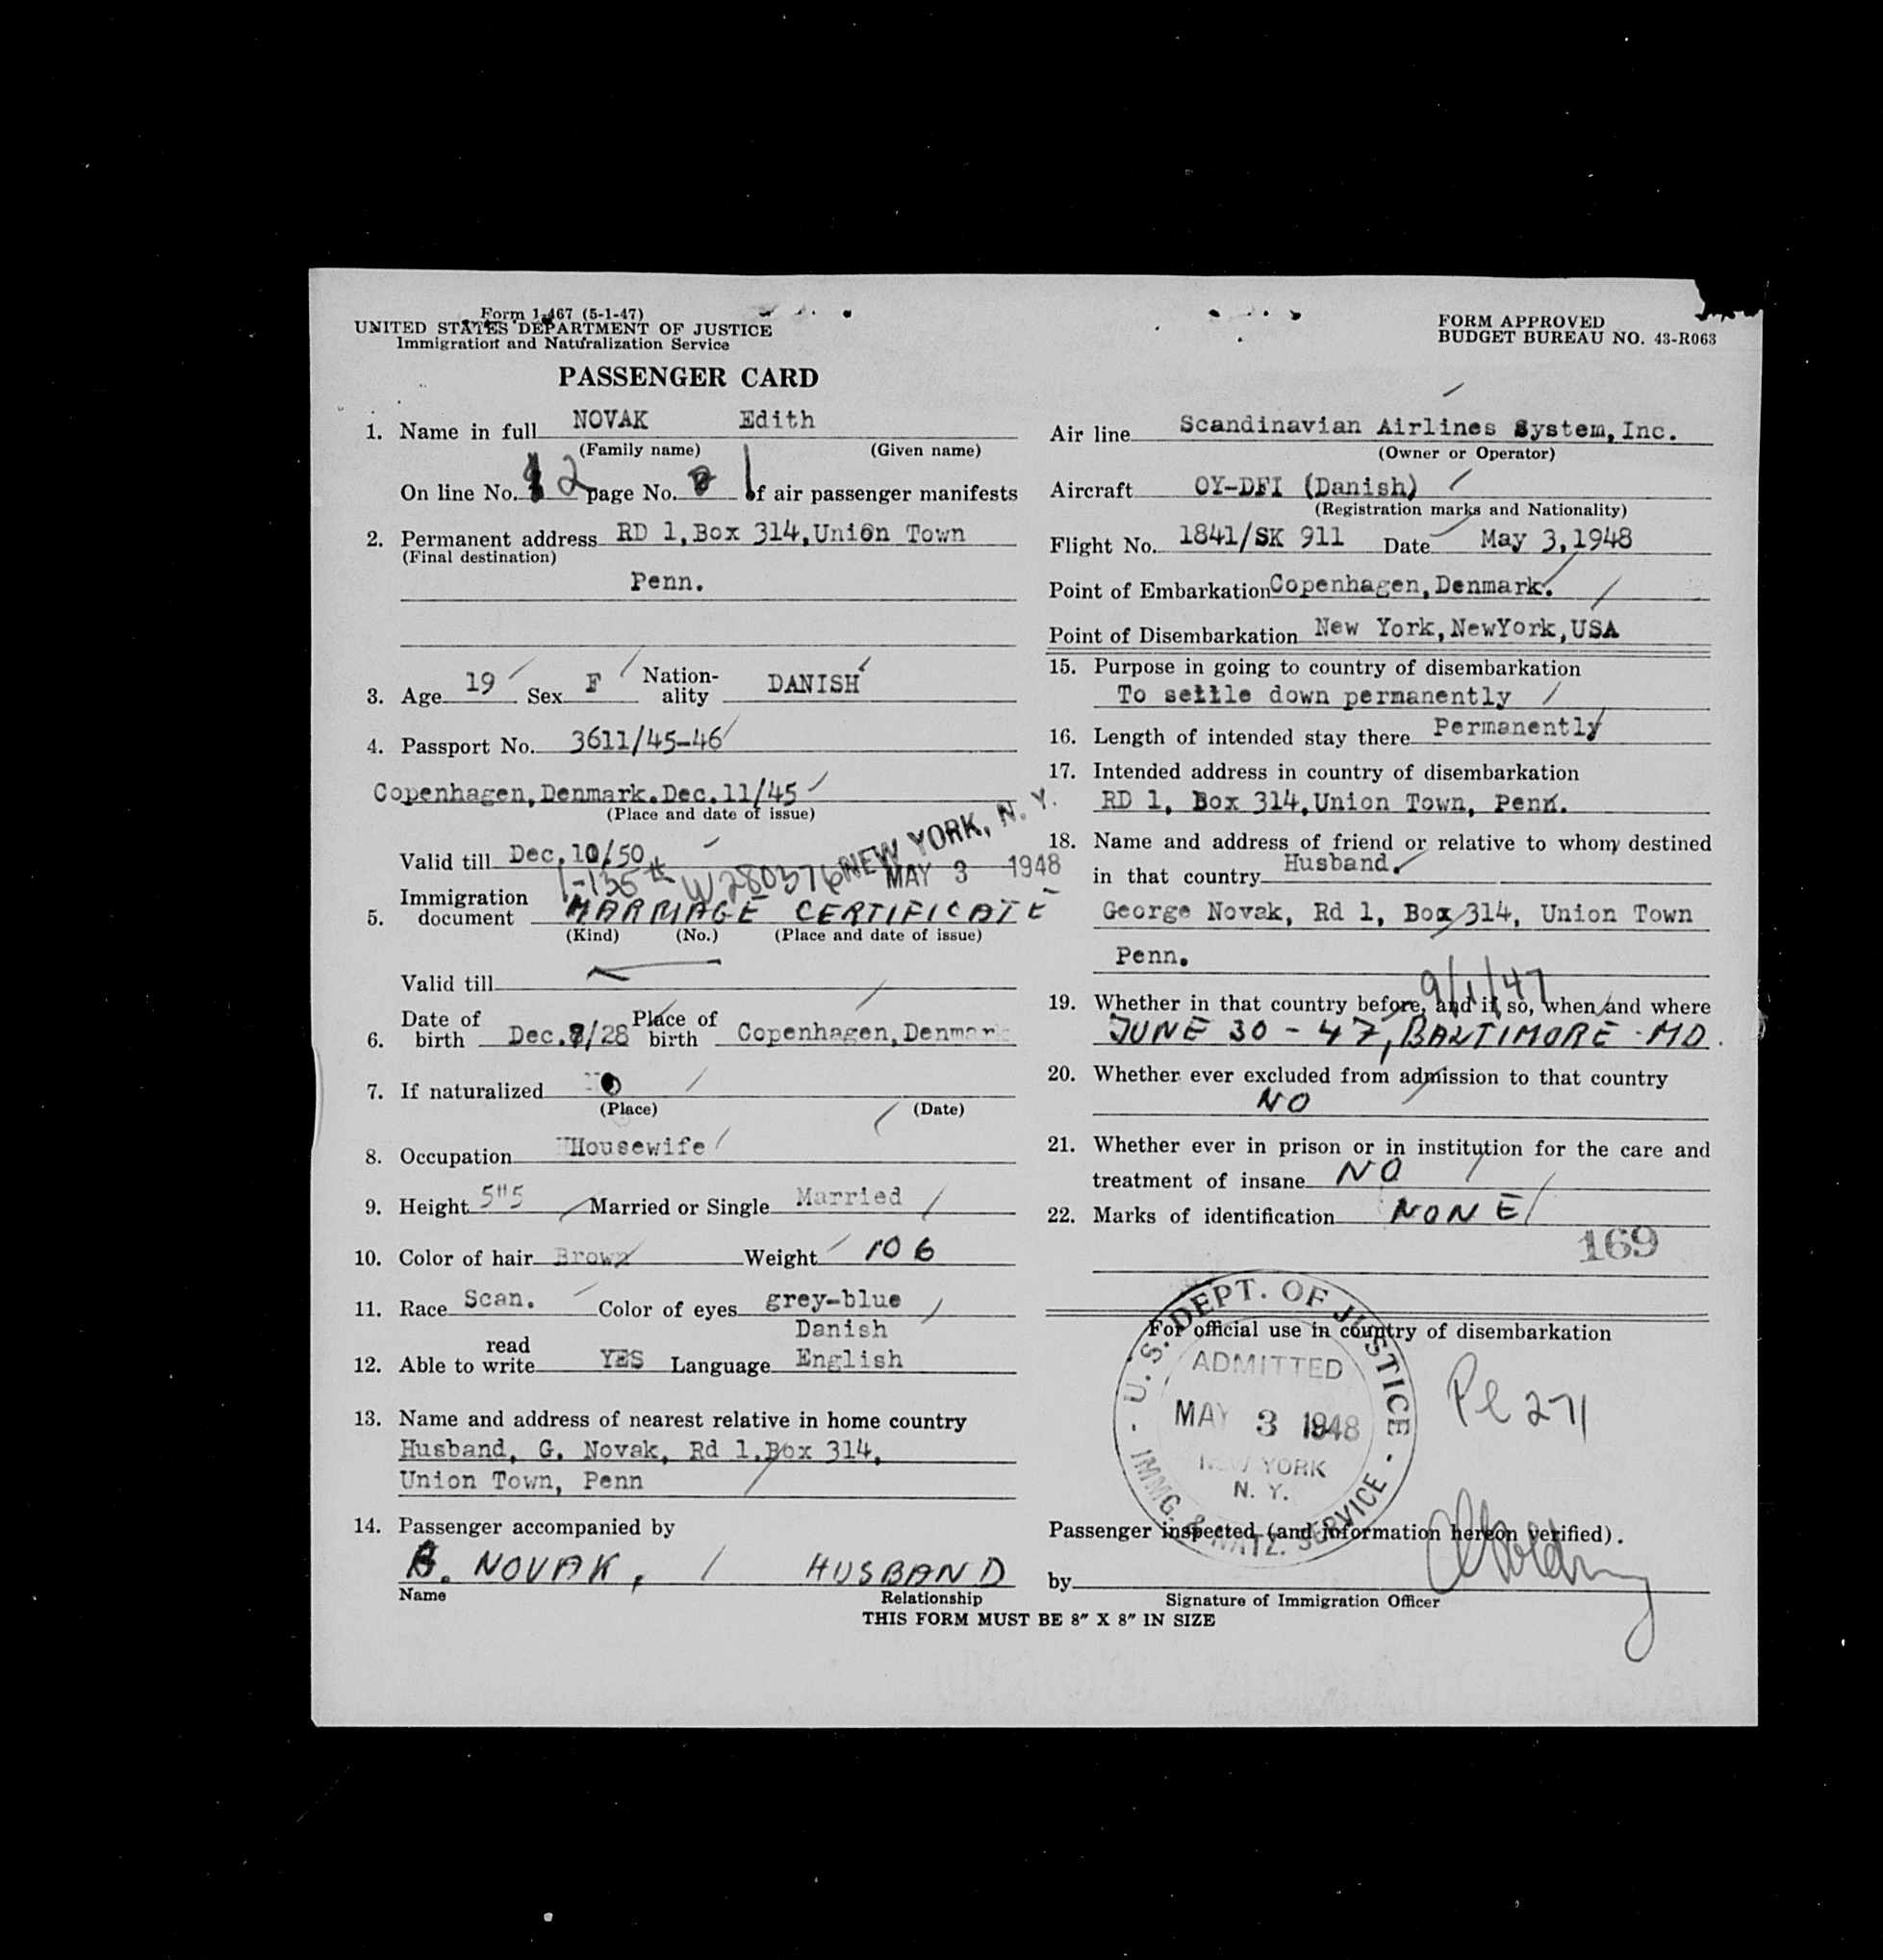 Form 1-467 (5-1-47)
UNITED STATES DEPARTMENT OF JUSTICE
Immigration and Naturalization Service
PASSENGER CARD
1. Name in full NOVAK Edith
(Family name) (Given name)
On line No. 2 page No. 1 of air passenger manifests
2. Permanent address RD 1,Box 314,Union Town
(Final destination)
Penn.
3. Age 19 Sex F Nation-ality DANISH
4. Passport No. 3611/45-46
Copenhagen,Denmark.Dec.11/45
(Place and date of issue)
Valid till Dec.10/50
NEW YORK, N. Y.
W280376 MAY 3 1948
5. Immigration document MARRIAGE CERTIFICATE
(Kind) (No.) (Place and date of issue)
Valid till
6. Date of birth Dec. /28 Place of birth Copenhagen,Denmark
7. If naturalized
(Place) (Date)
8. Occupation Housewife
9. Height 5"5 Married or Single Married
10. Color of hair Brown Weight 106
11. Race Scan. Color of eyes grey-blue
Danish
12. Able to read write YES Language English
13. Name and address of nearest relative in home country
Husband, G. Novak, Rd 1,Box 314,
Union Town, Penn
14. Passenger accompanied by
NOVAK, HUSBAND
Name Relationship
FORM APPROVED
BUDGET BUREAU NO. 43-R063
Air line Scandinavian Airlines System,Inc.
(Owner or Operator)
Aircraft OY-DFI (Danish)
(Registration marks and Nationality)
Flight No. 1841/SK 911 Date May 3,1948
Point of Embarkation Copenhagen,Denmark.
Point of Disembarkation New York,NewYork,USA
15. Purpose in going to country of disembarkation
To settle down permanently
16. Length of intended stay there Permanently
17. Intended address in country of disembarkation
RD 1, Box 314,Union Town, Penn.
18. Name and address of friend or relative to whom destined
in that country Husband.
George Novak, Rd 1, Box 314, Union Town
Penn.
9/1/47
19. Whether in that country before, and if so, when and where
JUNE 30 - 47, BALTIMORE - MD.
20. Whether ever excluded from admission to that country
NO
21. Whether ever in prison or in institution for the care and
treatment of insane NO
22. Marks of identification NONE
169
For official use in country of disembarkation
U. S. DEPT. OF JUSTICE
ADMITTED
MAY 3 1948
NEW YORK
N. Y.
IMMG. & NATZ. SERVICE
Pl 271
Passenger inspected (and information hereon verified).
by
Signature of Immigration Officer
THIS FORM MUST BE 8" X 8" IN SIZE